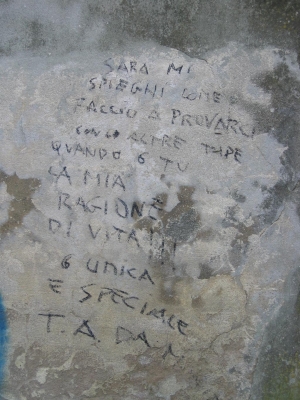 SARA MI
SPIEGHI COME
FACCIO A PROVARCI
CON LE ALTRE TIPE
QUANDO 6 TU
LA MIA
RAGIONE
DI VITA!!!
6 UNICA
E SPECIALE
T. A. DA